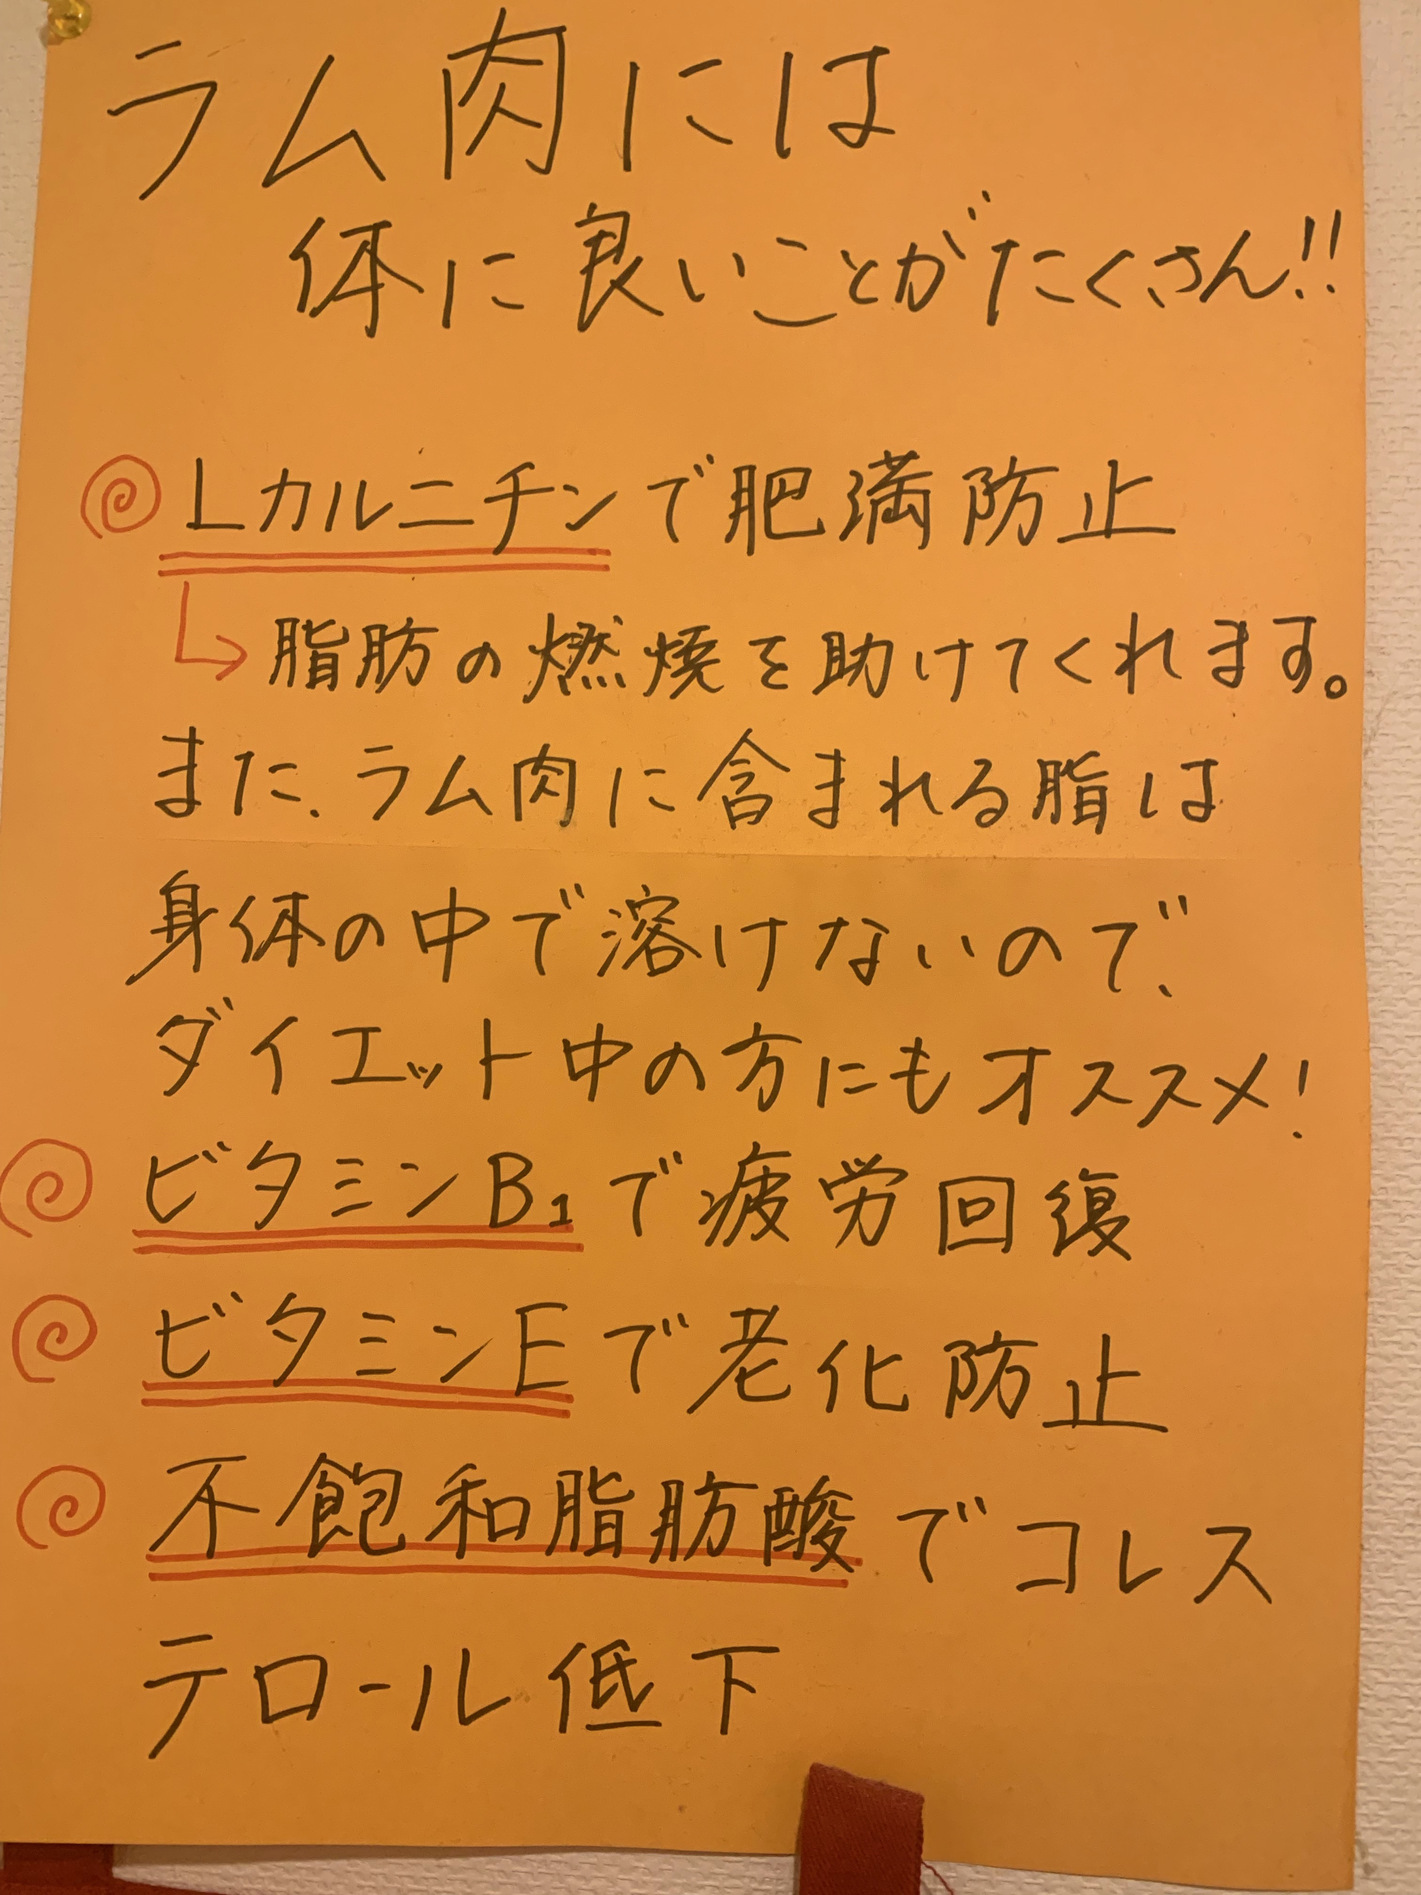 ラム肉には
体に良いことがたくさん!!
Lカルニチンで肥満防止
脂肪の燃焼を助けてくれます。
また、ラム肉に含まれる脂は
身体の中で溶けないので、
ダイエット中の方にもオススメ!
ビタミンB1で疲労回復
ビタミンEで老化防止
不飽和脂肪酸でコレス
テロール低下